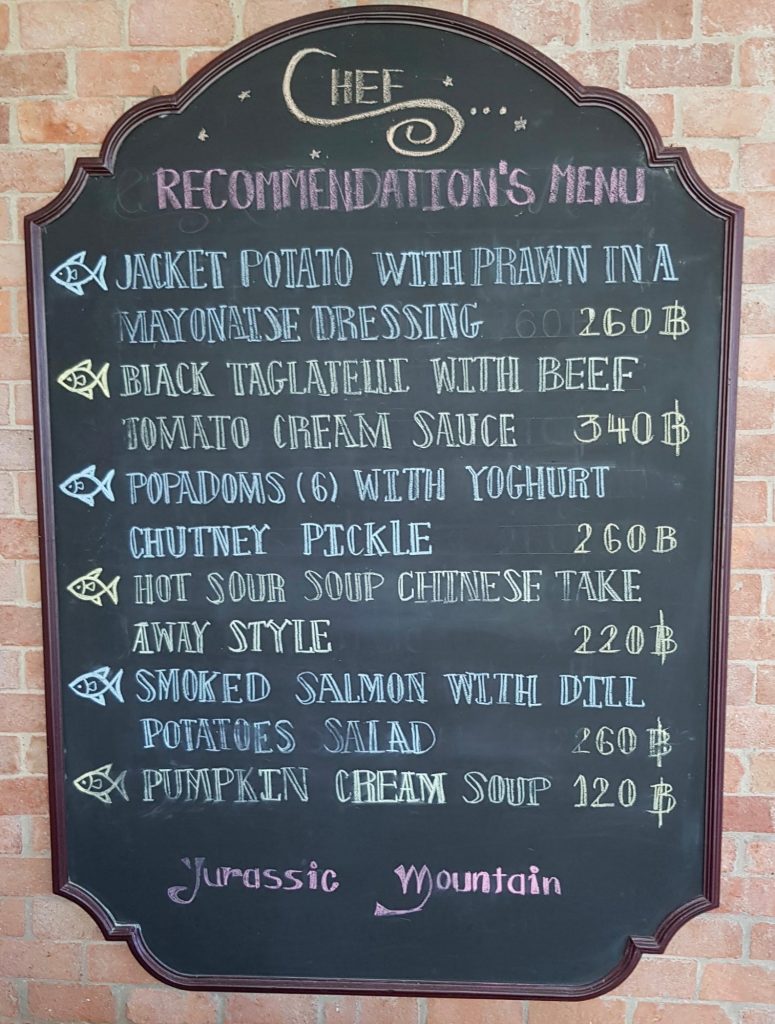 CHEF...
RECOMMENDATION'S MENU
JACKET POTATO WITH PRAWN IN A
MAYONAISE DRESSING 260฿
BLACK TAGLATELLI WITH BEEF
TOMATO CREAM SAUCE 340฿
POPADOMS (6) WITH YOGHURT
CHUTNEY PICKLE 260B
HOT SOUR SOUP CHINESE TAKE
AWAY STYLE 220฿
SMOKED SALMON WITH DILL
POTATOES SALAD 260฿
PUMPKIN CREAM SOUP 120฿
Jurassic Mountain